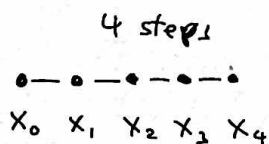 4 steps
X₀ X₁ X₂ X₃ X₄